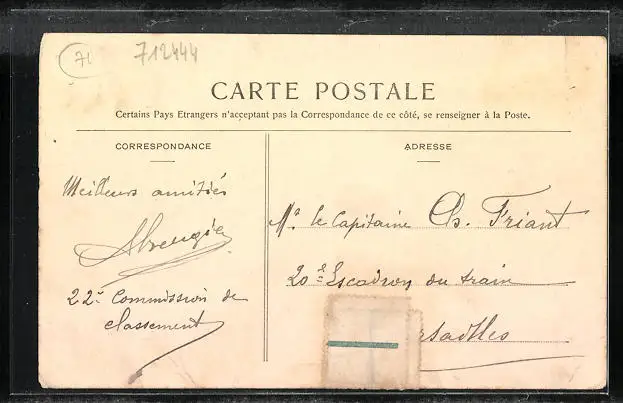 71
712444
CARTE POSTALE
Certains Pays Etrangers n'acceptant pas la Correspondance de ce côté, se renseigner à la Poste.
CORRESPONDANCE
Meilleurs amitiés
22e Commission de
classement
ADRESSE
Mr le Capitaine Ch. Friant
20e Escadron du train